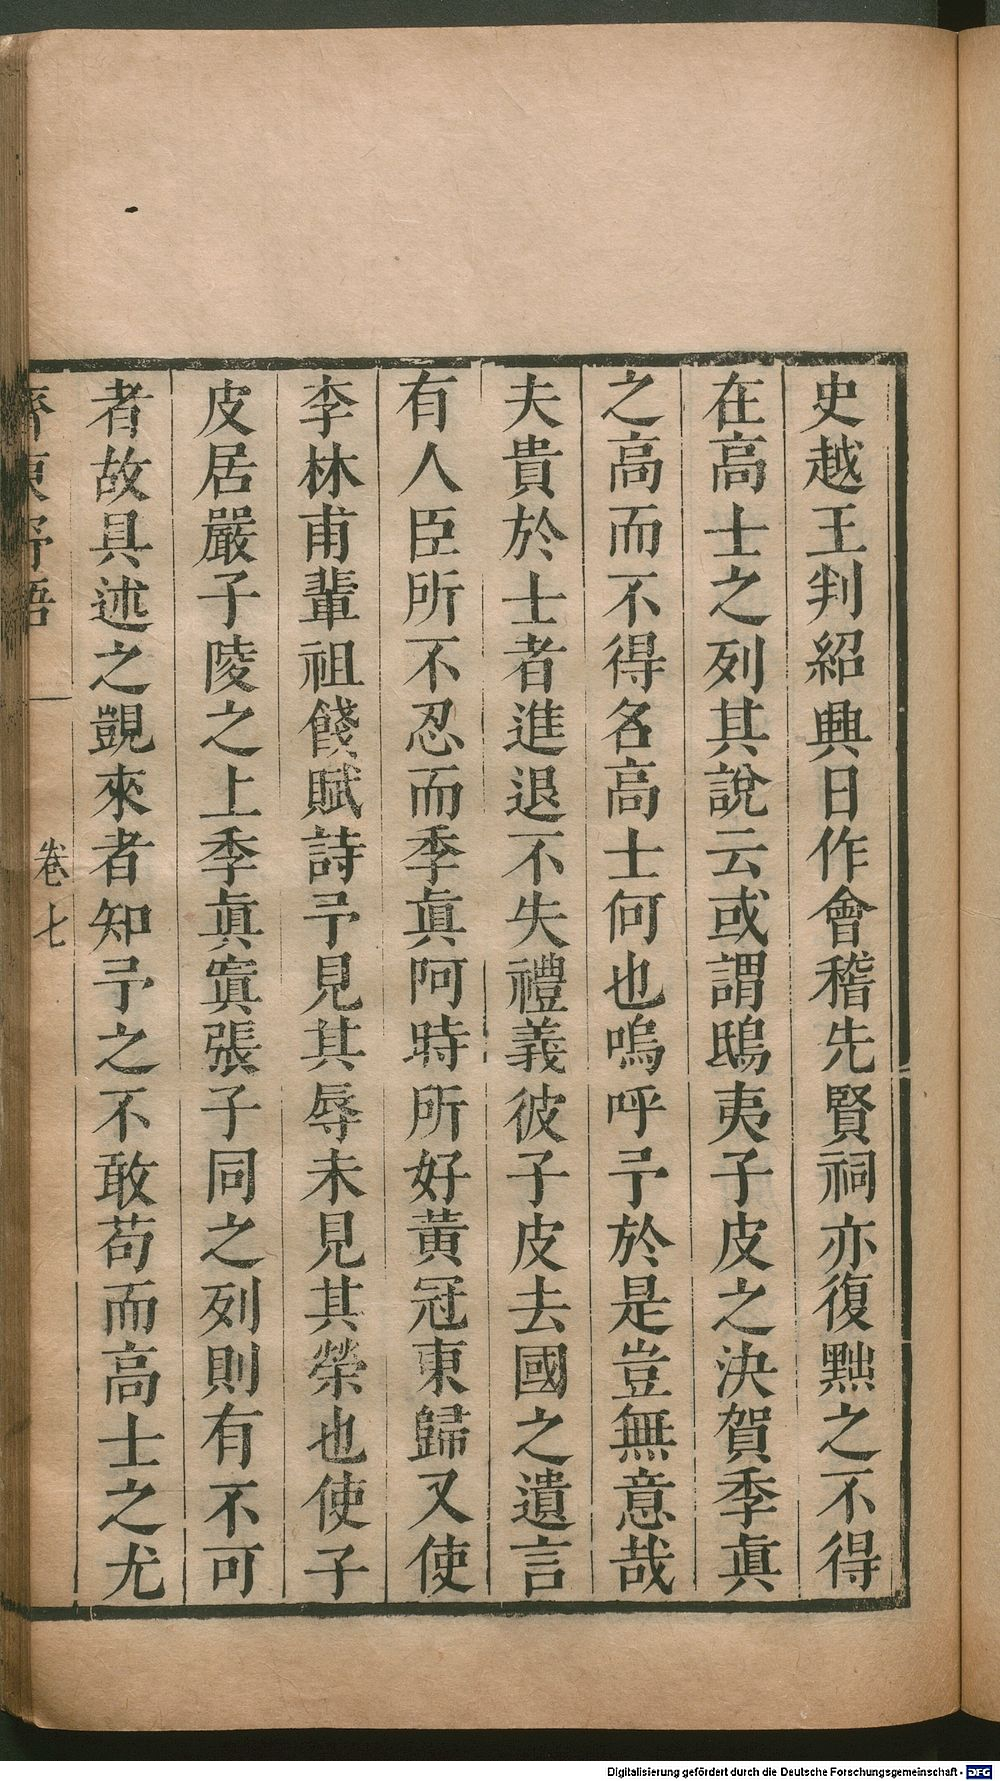 史越王判紹興日作會稽先賢祠亦復黜之不得
在高士之列其說云或謂鴟夷子皮之決賀季眞
之高而不得名高士何也嗚呼予於是豈無意哉
夫貴於士者進退不失禮義彼子皮去國之遺言
有人臣所不忍而季眞阿時所好黃冠東歸又使
李林甫輩祖餞賦詩予見其辱未見其榮也使子
皮居嚴子陵之上季眞寘張子同之列則有不可
者故具述之覬來者知予之不敢苟而高士之尤
齊東野語
卷七
Digitalisierung gefördert durch die Deutsche Forschungsgemeinschaft - DFG